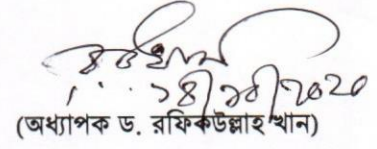 ১৪/১০/২০২০
(অধ্যাপক ড. রফিকউল্লাহ খান)